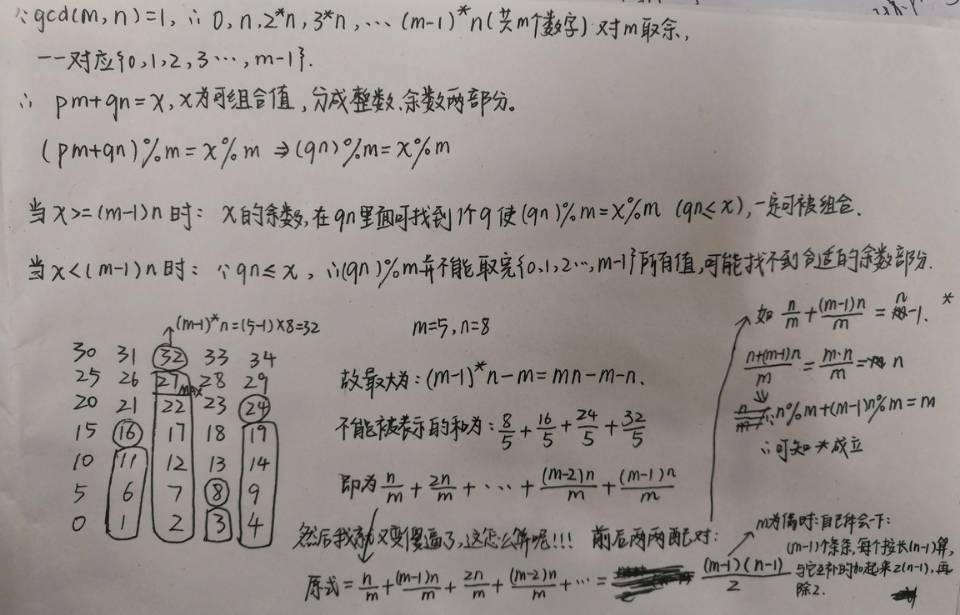 ∵gcd(m,n)=1, ∴ 0, n, 2*n, 3*n, … (m-1)*n (共m个数字) 对m取余,
一一对应{0,1,2,3…,m-1}.
∴ pm+qn=x, x为可组合值, 分成整数、余数两部分。
(pm+qn)%m=x%m ⇒(qn)%m=x%m
当x>=(m-1)n时: x的余数,在qn里面可找到1个q使(qn)%m=x%m (qn≤x),一定可被组合.
当x<(m-1)n时: ∵qn≤x, ∴(qn)%m并不能取完{0,1,2…,m-1}所有值,可能找不到合适的余数部分.
(m-1)*n=(5-1)×8=32
30 31 32 33 34
25 26 27 28 29
MAX
20 21 22 23 24
15 16 17 18 19
10 11 12 13 14
5 6 7 8 9
0 1 2 3 4
m=5, n=8
故最大为: (m-1)*n-m=mn-m-n.
不能被表示的和为: 8/5+16/5+24/5+32/5
即为 n/m+2n/m+…+(m-2)n/m+(m-1)n/m
然后我就又变傻逼了,这怎么算呢!!! 前后两两配对:
原式=n/m+(m-1)n/m+2n/m+(m-2)n/m+…= (m-1)(n-1)/2
如 n/m+(m-1)n/m=n-1. *
n+(m-1)n/m=m·n/m=n
∴n%m+(m-1)n%m=m
∴可知*成立
m为偶时:自己体会一下:
(m-1)个条条,每个按长(n-1)算,
与它互补的加起来2(n-1),再
除2.